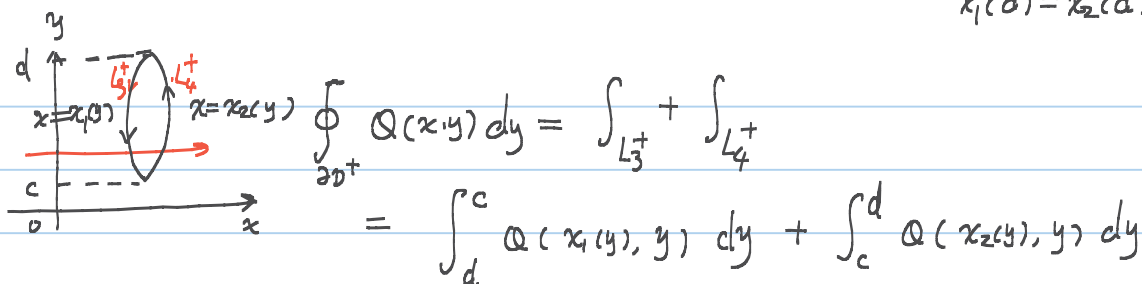 x₁(d) = x₂(d)
y
d
L₃⁺ L₄⁺
x=x₁(y) x=x₂(y) ∮_{∂D⁺} Q(x,y) dy = ∫_{L₃⁺} + ∫_{L₄⁺}
c
0 x
= ∫_d^c Q(x₁(y), y) dy + ∫_c^d Q(x₂(y), y) dy